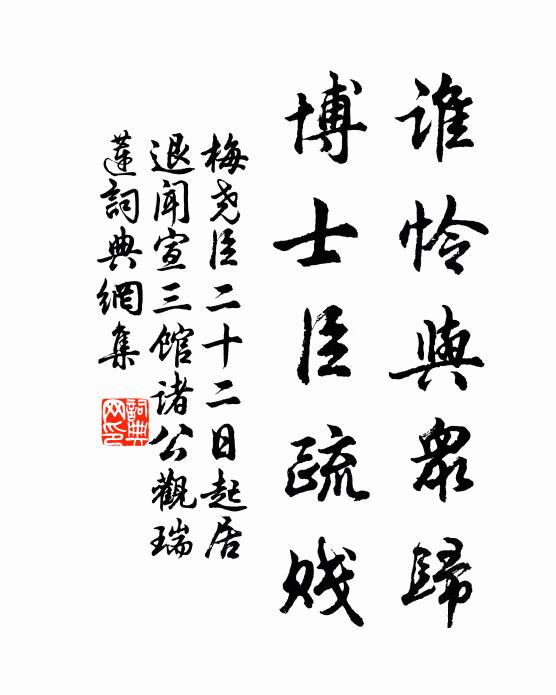 誰怜與衆歸
博士臣疏賤
梅堯臣二十二日起居
退聞宣三館諸公觀瑞
蓮詞典網集
詞典
网印